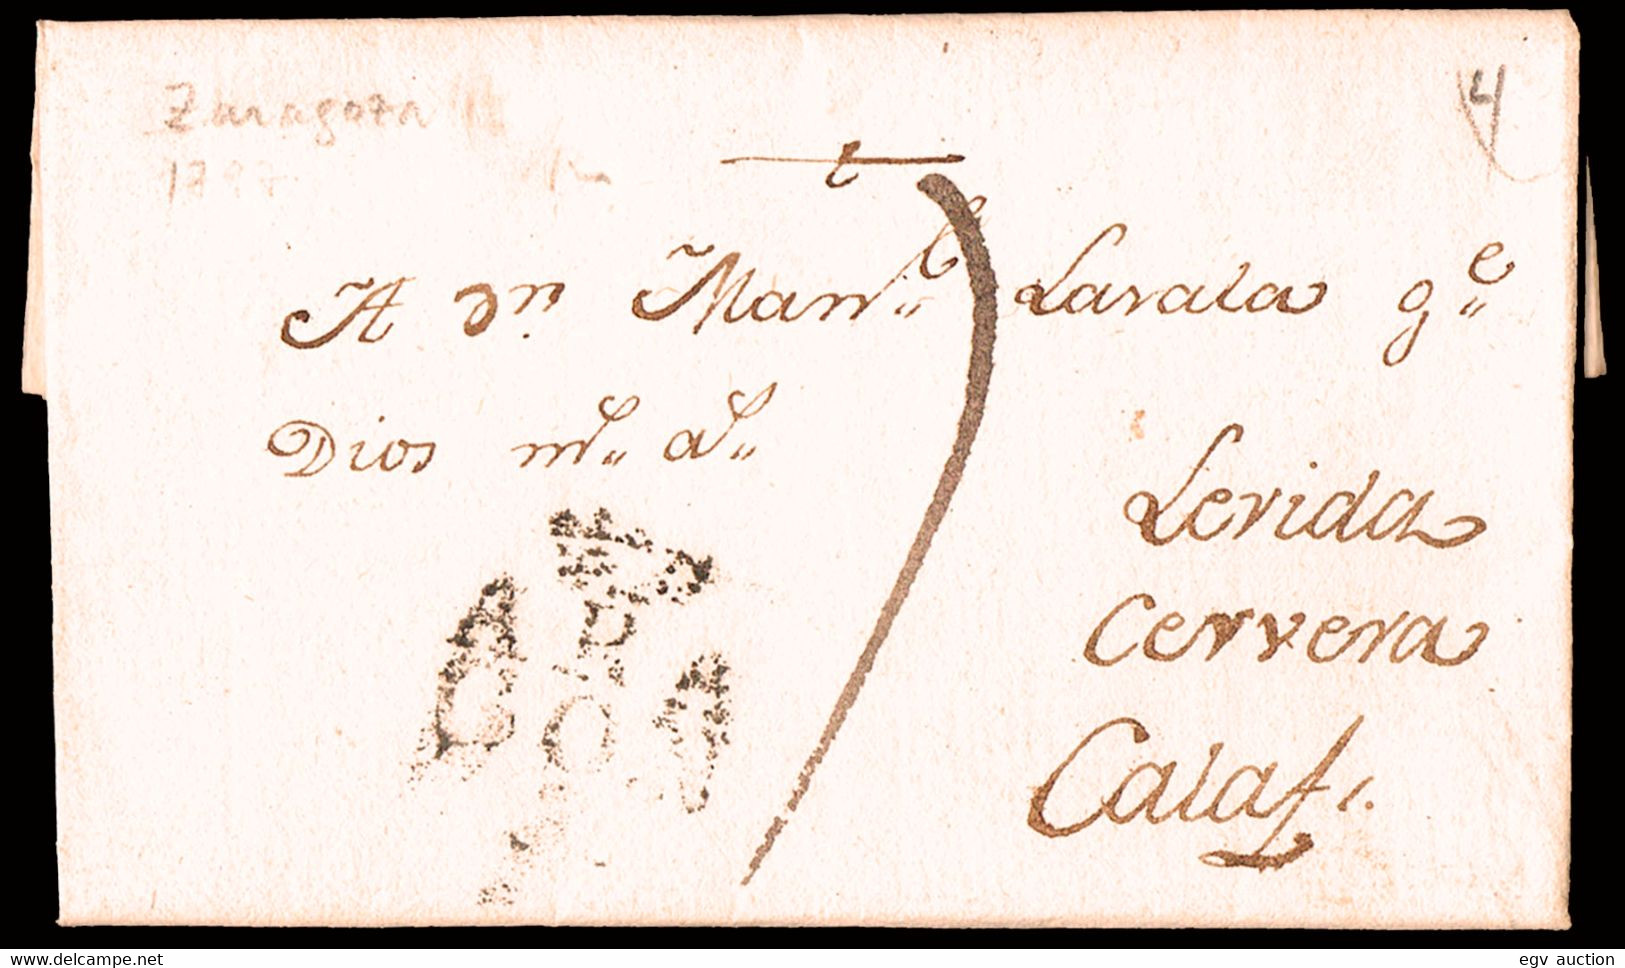 Zaragoza
1797
4
t
A Dn. Man.l Lavala g.e
Dios m.s a.s
Lerida
Cervera
Calaf.
www.delcampe.net
egv auction